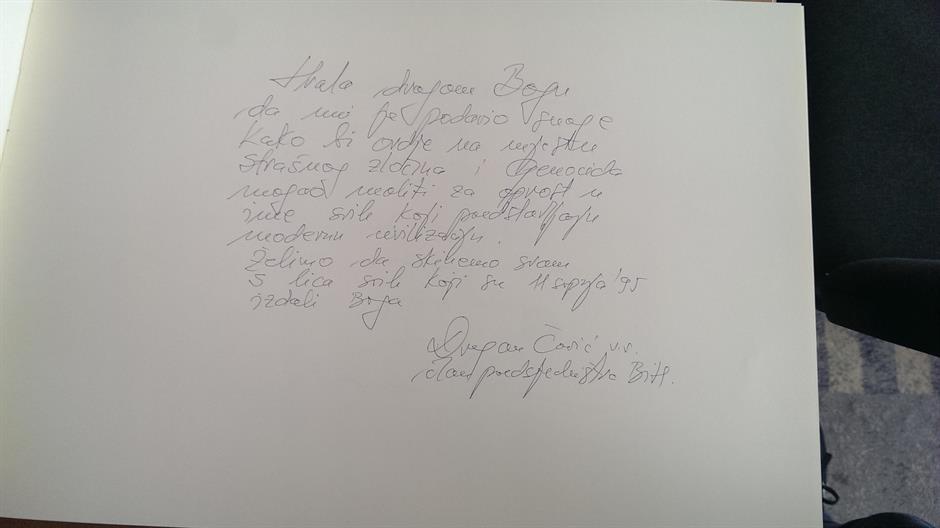 Hvala dragom Bogu
da mi je podario snage
kako bi ovdje na mjestu
strašnog zločina i Genocida
mogao moliti za oprost u
ime svih koji predstavljaju
modernu civilizaciju.
Želimo da skinemo sram
s lica svih koji su 11 srpnja '95
izdali Boga
Dragan Čović v.r.
član predsjedništva BiH.